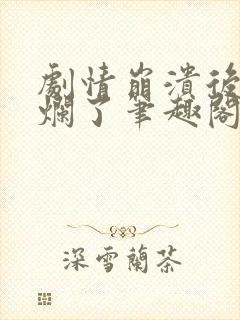 劇情崩潰後
爛了筆趣閣
深雪蘭茶